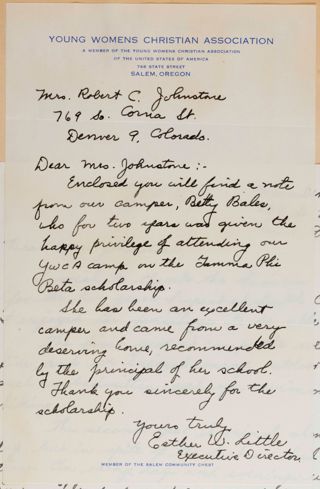 YOUNG WOMENS CHRISTIAN ASSOCIATION
A MEMBER OF THE YOUNG WOMENS CHRISTIAN ASSOCIATION
OF THE UNITED STATES OF AMERICA
768 STATE STREET
SALEM, OREGON
Mrs. Robert C. Johnstone
769 So. Corona St.
Denver 9, Colorado.
Dear Mrs. Johnstone:-
Enclosed you will find a note
from our camper, Betty Bales,
who for two years was given the
happy privilege of attending our
YWCA camp on the Gamma Phi
Beta scholarship.
She has been an excellent
camper and came from a very
deserving home, recommended
by the principal of her school.
Thank you sincerely for the
scholarship.
Yours truly,
Esther D. Little
Executive Director
MEMBER OF THE SALEM COMMUNITY CHEST